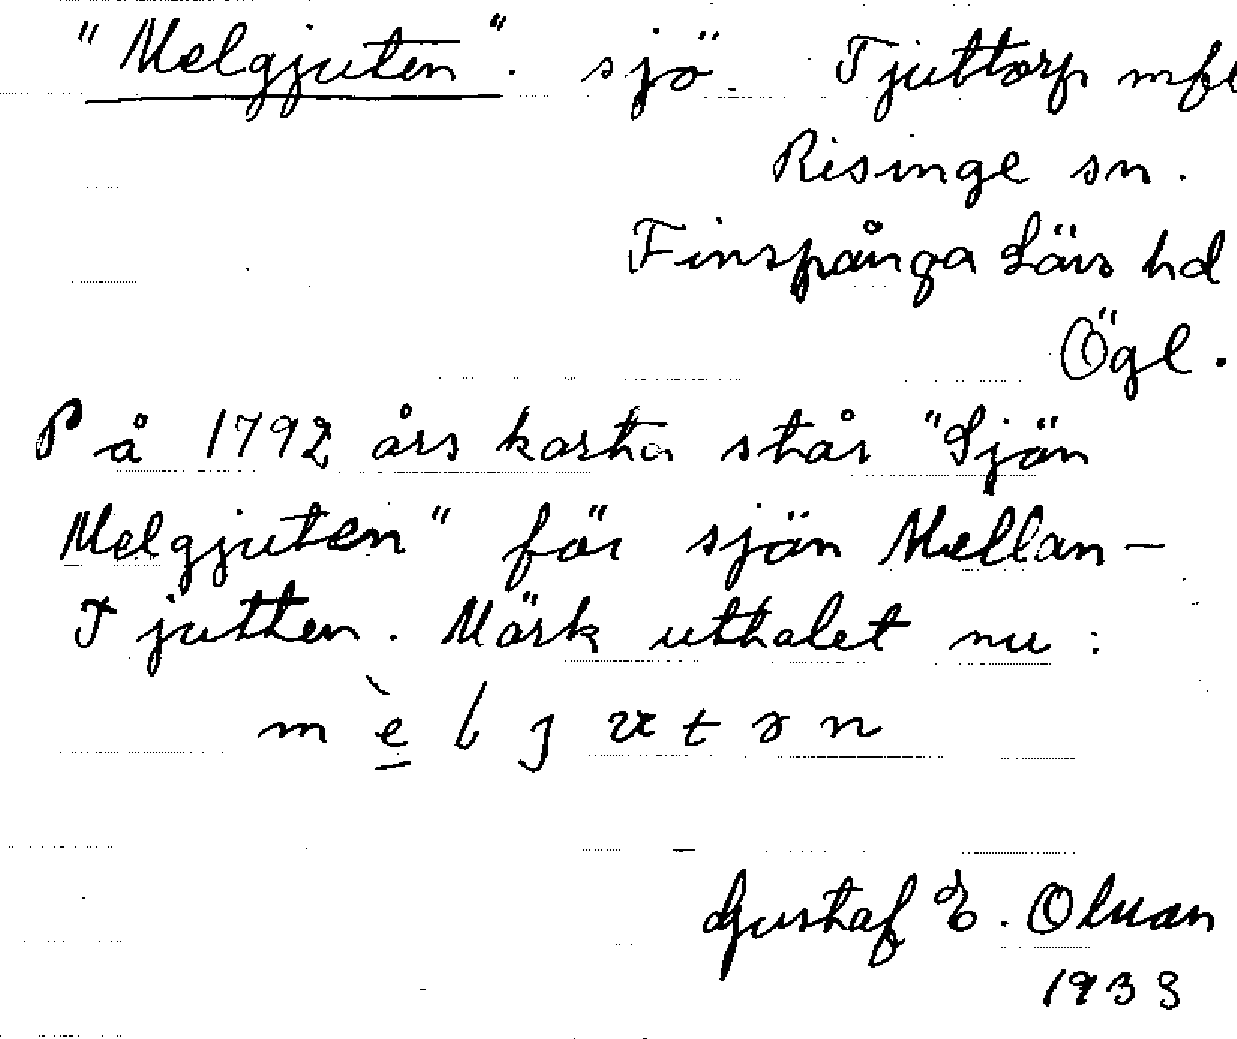 "Melgjuten". sjö. Tjuttorp mfl
Risinge sn.
Finspånga Läns hd
Ögl.
På 1792 års karta står "Sjön
Melgjuten" för sjön Mellan-
Tjutten. Märk uttalet nu:
Gustaf E. Olsson
1933